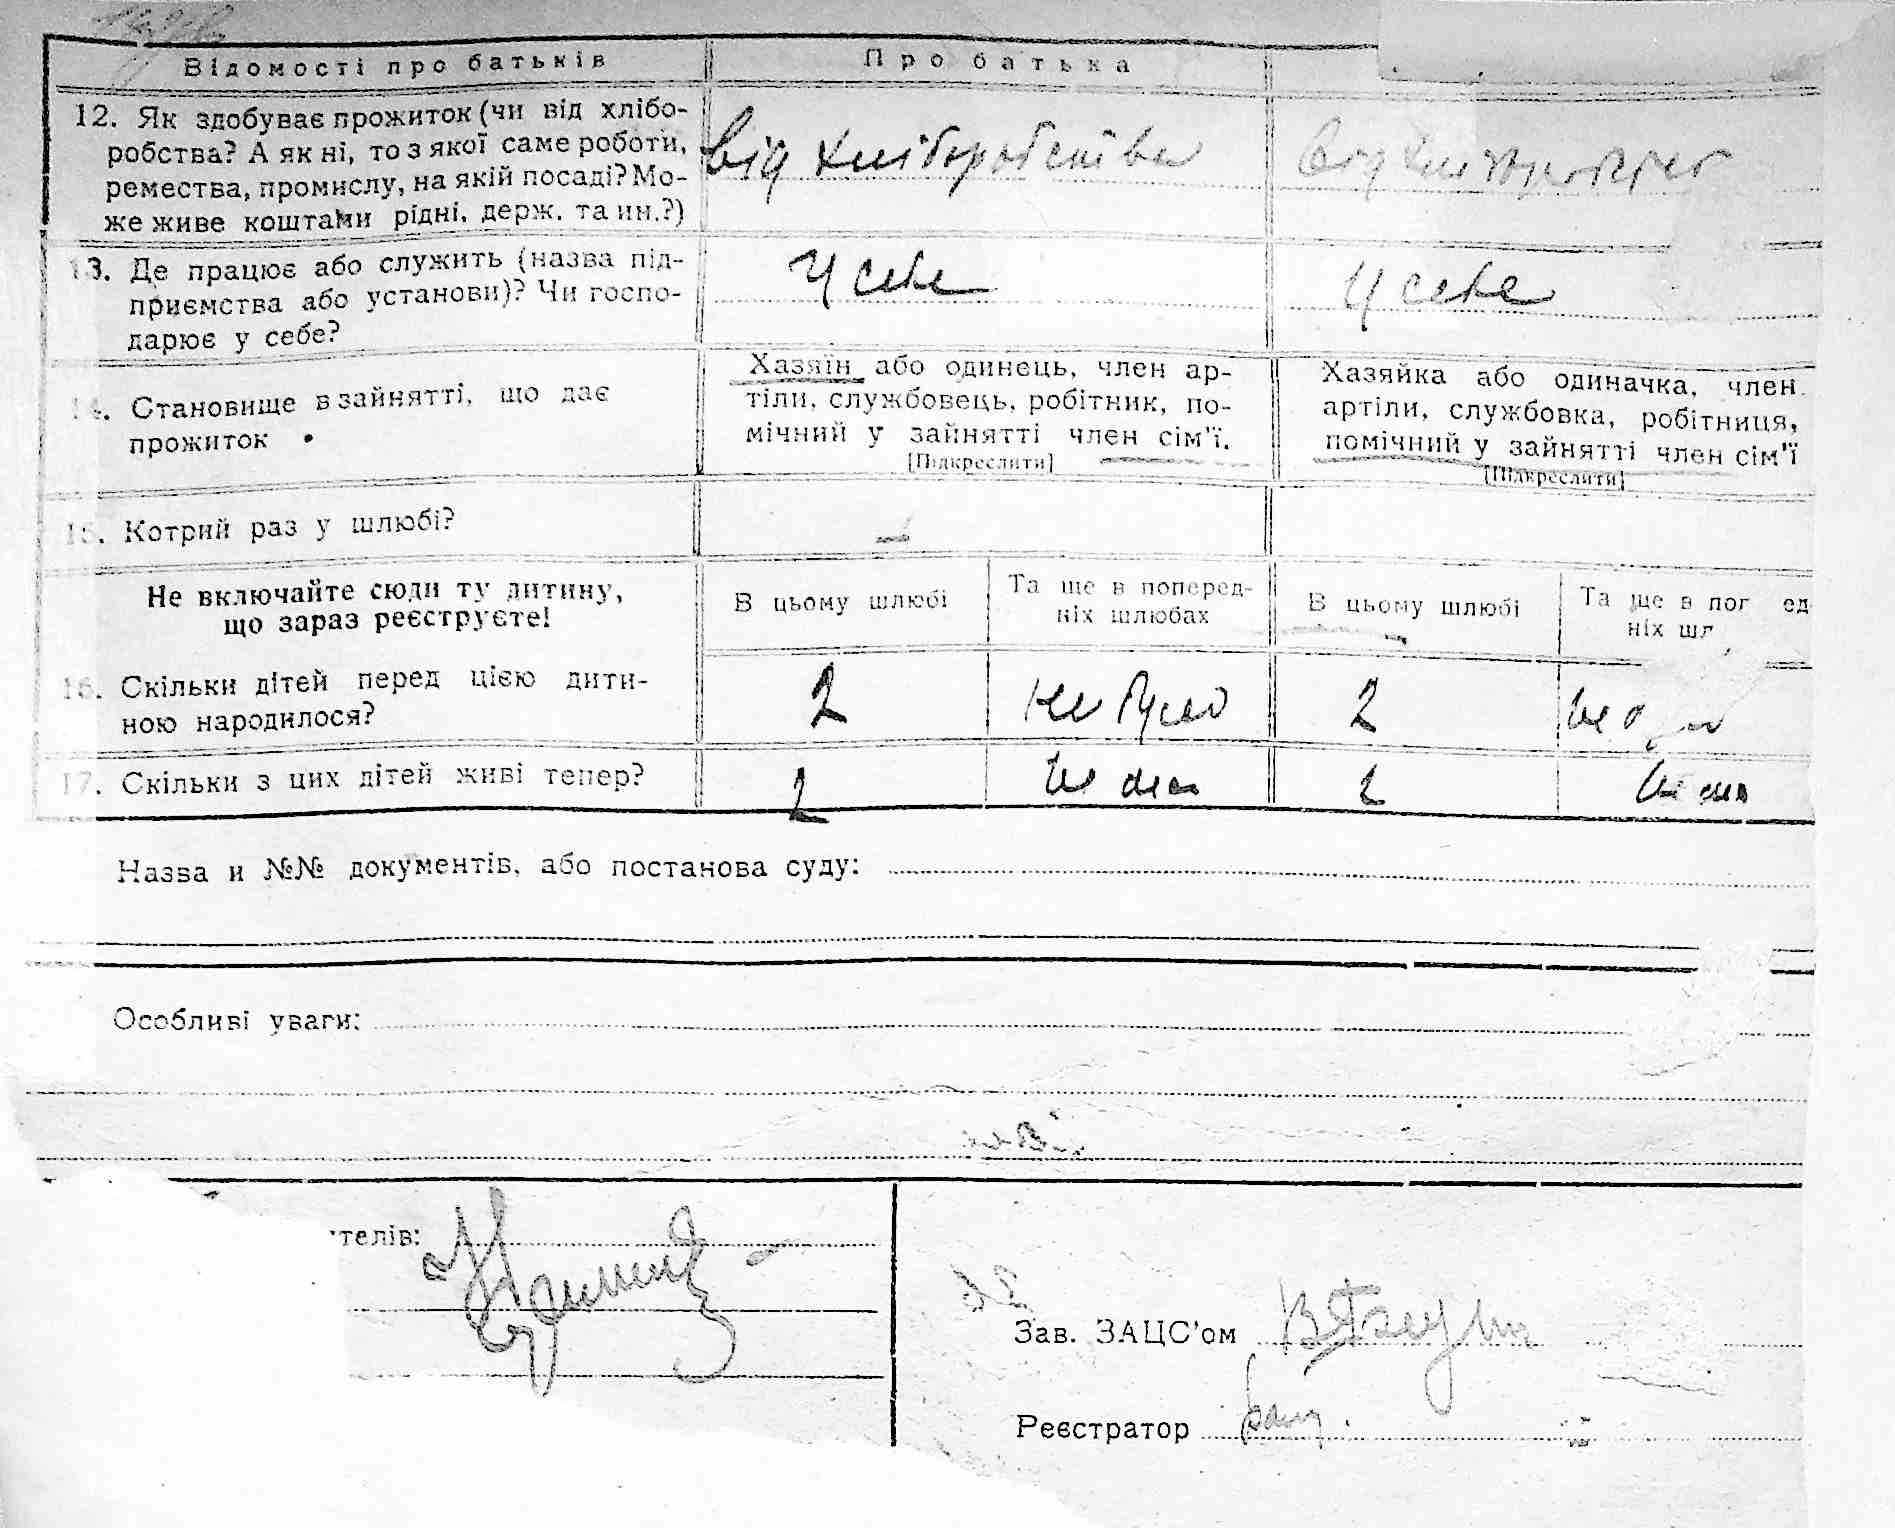 Відомості про батьків
Про батька
12. Як здобуває прожиток (чи від хлібо-
робства? А як ні, то з якої саме роботи,
ремества, промислу, на якій посаді? Мо-
же живе коштами рідні, держ. та ин.?)
від хліборобства
від хліборобства
13. Де працює або служить (назва під-
приємства або установи)? Чи госпо-
дарює у себе?
У себе
У себе
14. Становище в зайнятті, що дає
прожиток
Хазяїн або одинець, член ар-
тіли, службовець, робітник, по-
мічний у зайнятті член сім'ї.
[Підкреслити]
Хазяйка або одиначка, член
артіли, службовка, робітниця,
помічний у зайнятті член сім'ї
[Підкреслити]
15. Котрий раз у шлюбі?
Не включайте сюди ту дитину,
що зараз реєструєте!
В цьому шлюбі
Та ще в поперед-
ніх шлюбах
В цьому шлюбі
Та ще в поп ед
ніх шл
16. Скільки дітей перед цією дити-
ною народилося?
2
не було
2
не було
17. Скільки з цих дітей живі тепер?
2
нема
2
нема
Назва и №№ документів, або постанова суду:
Особливі уваги:
телів:
Зав. ЗАЦС'ом
Реєстратор